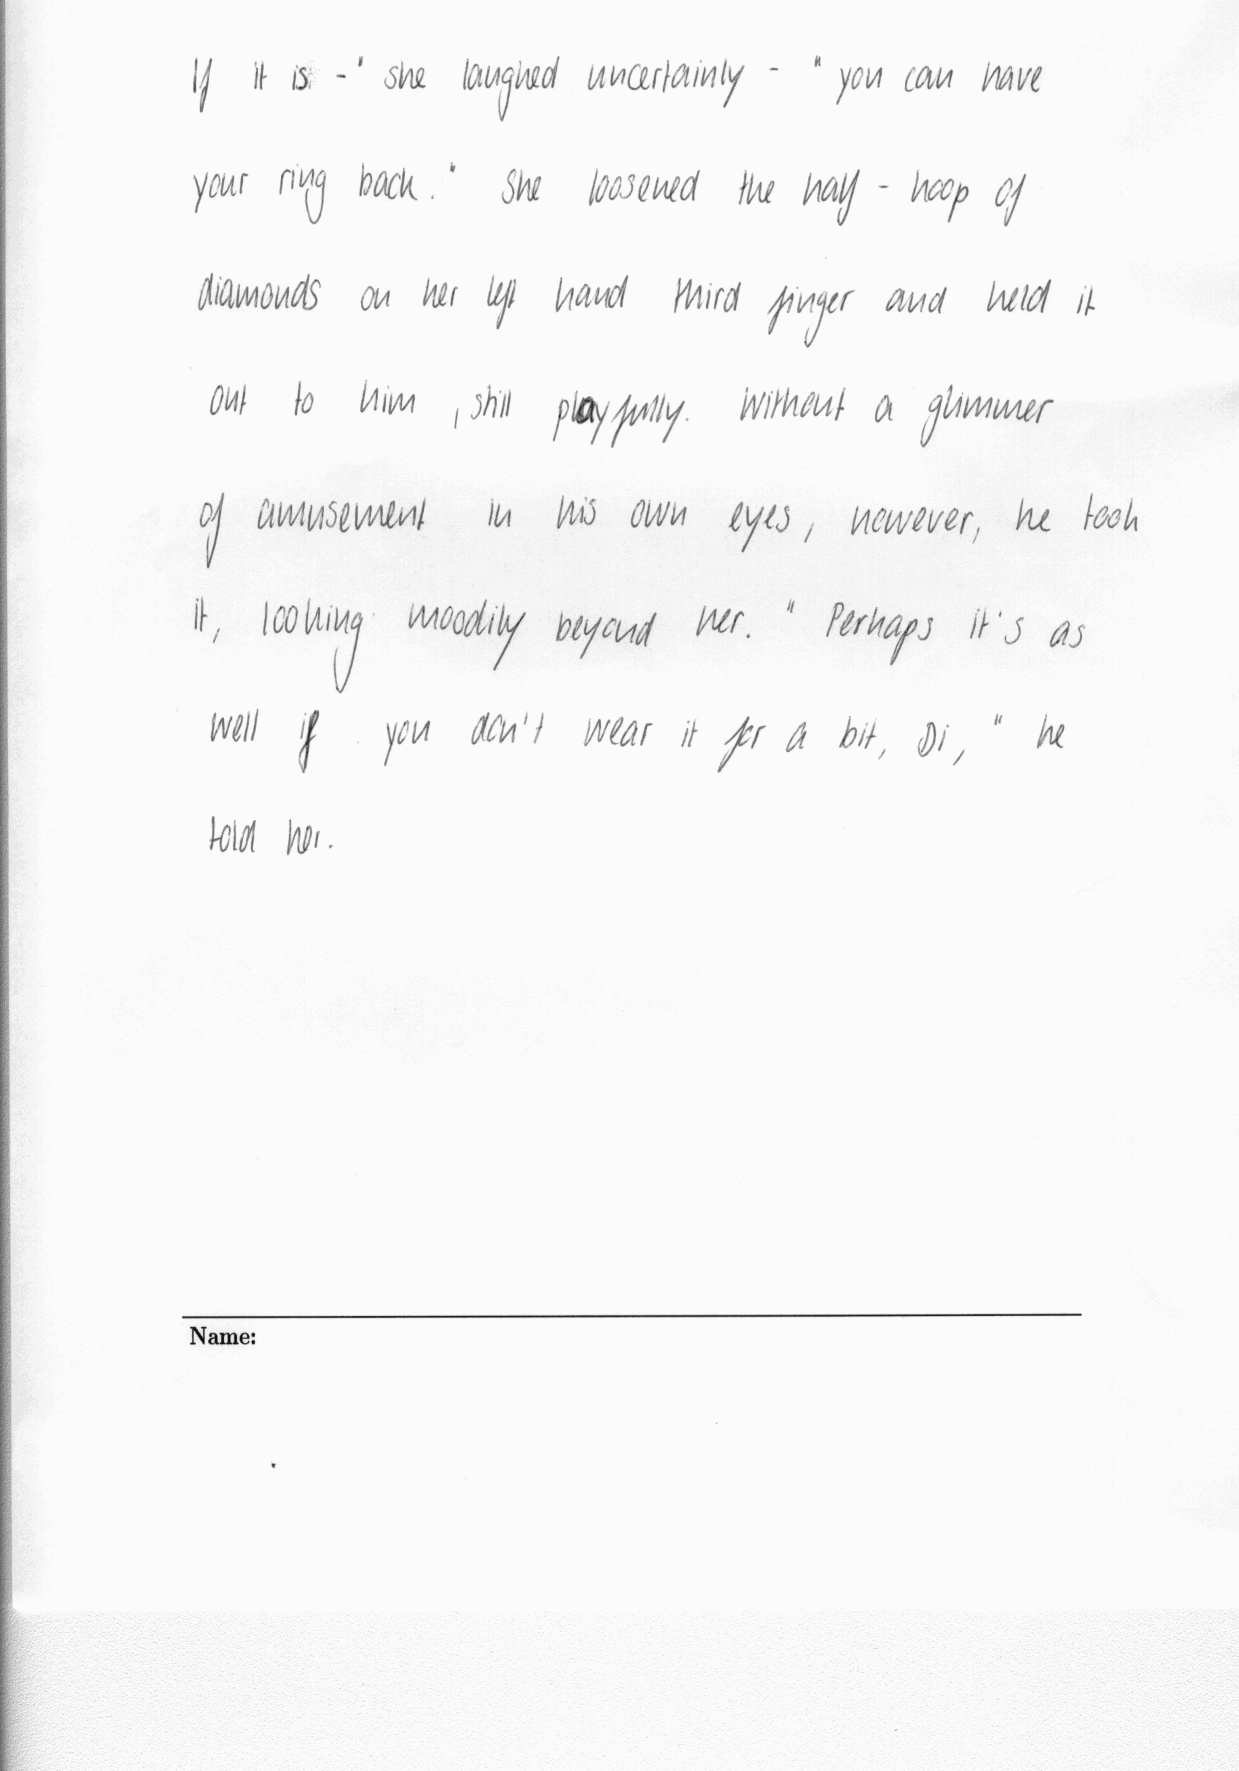 If it is -" she laughed uncertainly - "you can have
your ring back." She loosened the half-hoop of
diamonds on her left hand third finger and held it
out to him, still playfully. Without a glimmer
of amusement in his own eyes, however, he took
it, looking moodily beyond her. "Perhaps it's as
well if you don't wear it for a bit, Di," he
told her.
Name: